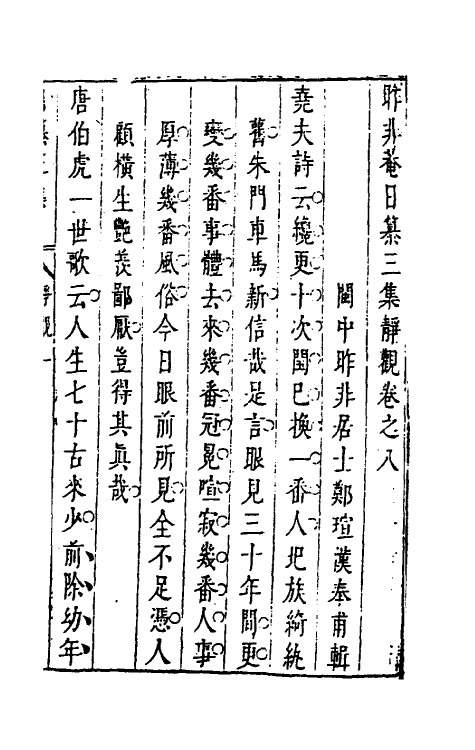 昨非菴日纂三集靜觀卷之八
閩中昨非居士鄭瑄漢奉甫輯
堯夫詩云纔更十次閏已換一番人圯族綺紈
舊朱門車馬新信哉是言眼見三十年間更
變幾番事體去來幾番冠冕喧寂幾番人事
厚薄幾番風俗今日眼前所見全不足憑人
顧橫生艷羨鄙厭豈得其眞哉
唐伯虎一世歌云人生七十古來少前除幼年